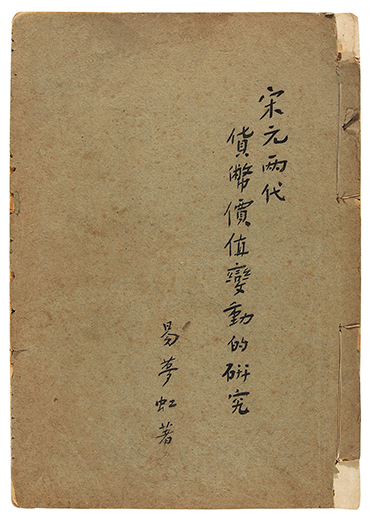 宋元兩代
貨幣價值變動的研究
易夢虹著